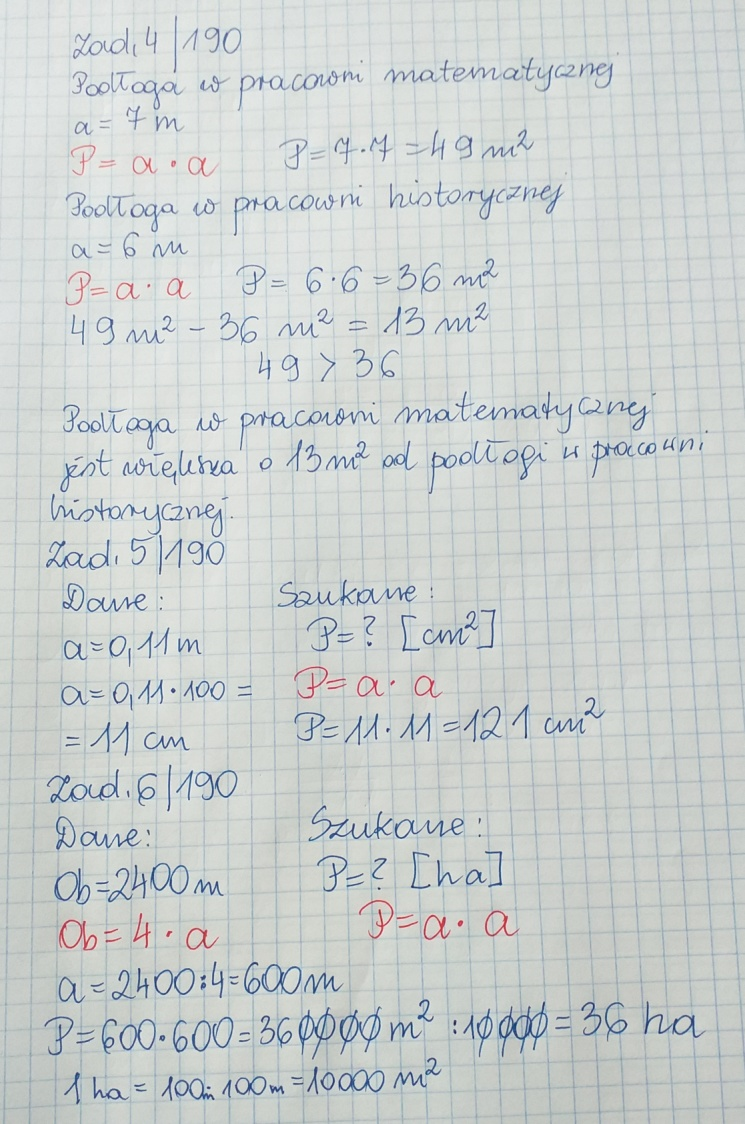 Zad. 4/190
Podłoga w pracowni matematycznej
a = 7 m
P = a · a P = 7·7 = 49 m²
Podłoga w pracowni historycznej
a = 6 m
P = a · a P = 6·6 = 36 m²
49 m² - 36 m² = 13 m²
49 > 36
Podłoga w pracowni matematycznej
jest większa o 13 m² od podłogi w pracowni
historycznej.
Zad. 5/190
Dane: Szukane:
a = 0,11 m P = ? [cm²]
a = 0,11·100 = P = a · a
= 11 cm P = 11·11 = 121 cm²
Zad. 6/190
Dane: Szukane:
Ob = 2400 m P = ? [ha]
Ob = 4 · a P = a · a
a = 2400:4 = 600 m
P = 600·600 = 360000 m² : 10000 = 36 ha
1 ha = 100m · 100m = 10000 m²